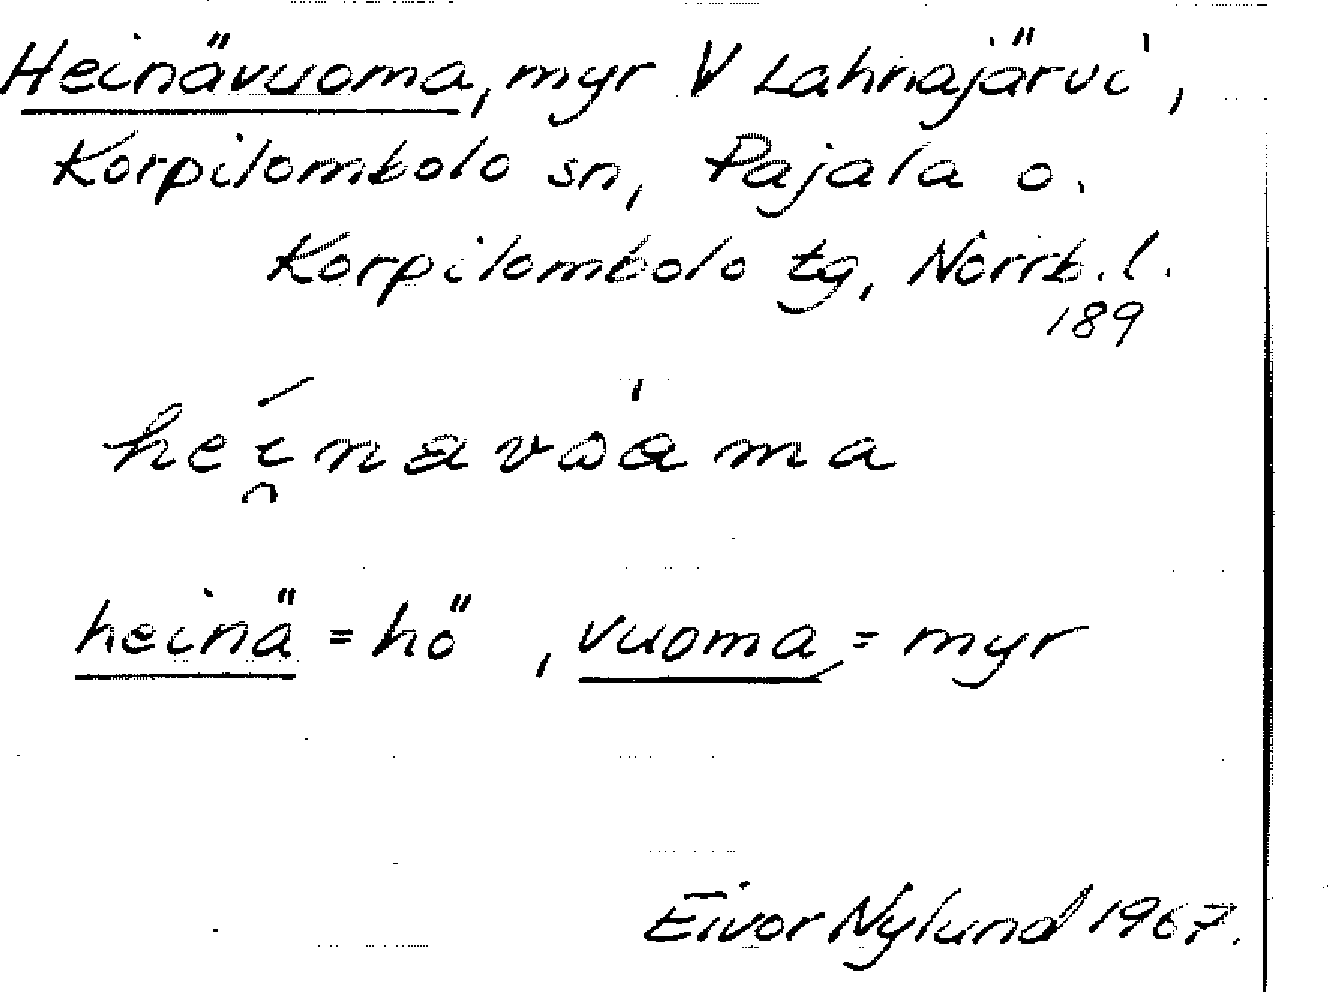 Heinävuoma, myr V Lahnajärvi,
Korpilombolo sn, Pajala o.
Korpilombolo tg, Norrb. l.
189
heí̯navòama
heinä = hö, vuoma = myr
Eivor Nylund 1967.